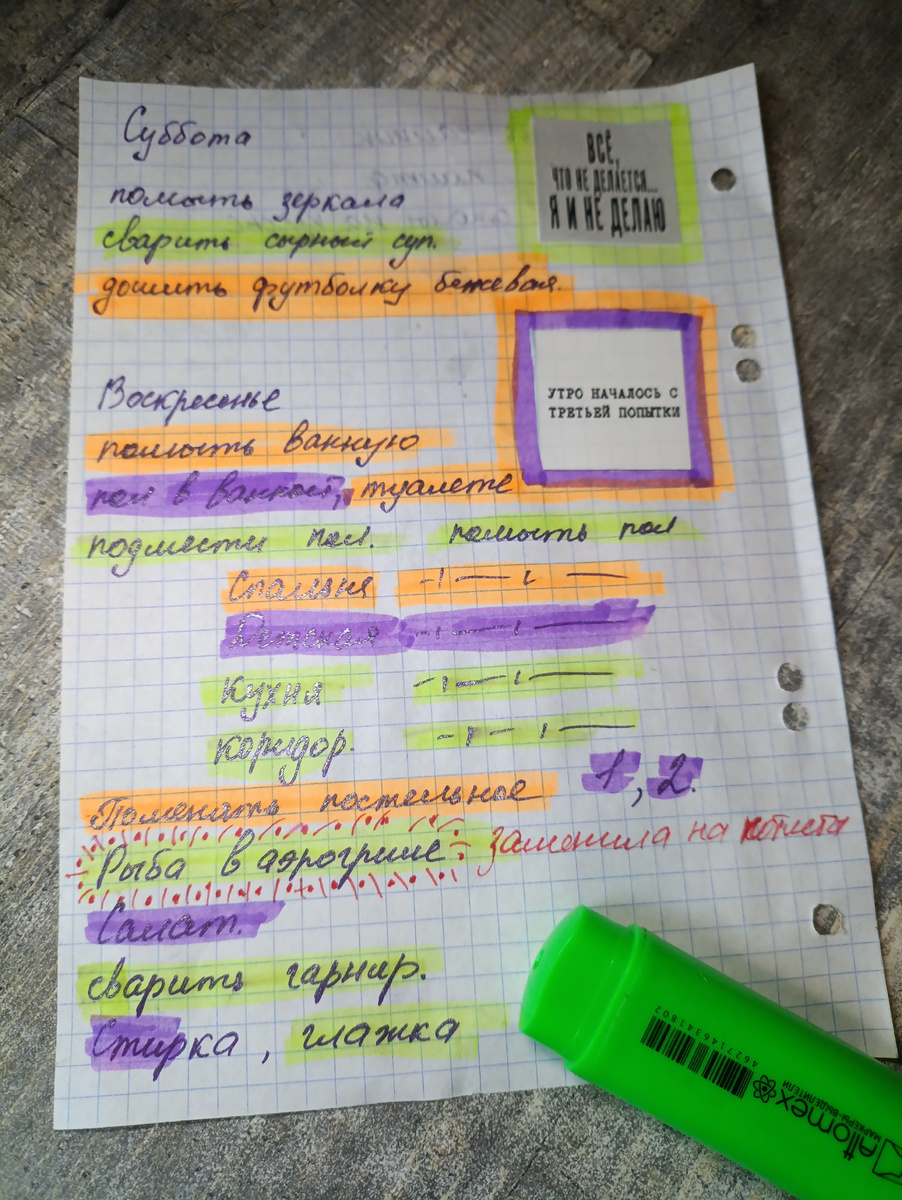 Суббота
помыть зеркала
сварить сырный суп.
дошить футболку бежевая.
ВСЁ,
ЧТО НЕ ДЕЛАЕТСЯ...
Я И НЕ ДЕЛАЮ
Воскресенье
помыть ванную
пол в ванной, туалете
УТРО НАЧАЛОСЬ С
ТРЕТЬЕЙ ПОПЫТКИ
подмести пол. помыть пол
Спальня -ı— ı —
Детская -ı— ı —
Кухня -ı— ı —
Коридор. -ı— ı —
Поменять постельное 1, 2.
Рыба в аэрогриле заменила на котлеты
Салат.
сварить гарнир.
Стирка, глажка
4627146341807
#attomex
МАРКЕРЫ-ВЫДЕЛИТЕЛИ